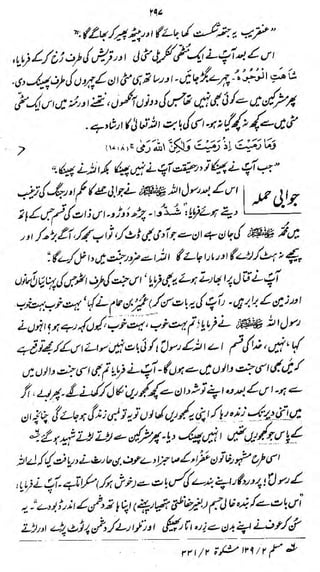 ۲۹۷
"عنقریب یہ جتھہ شکست کھا جائے گا اور پیٹھ پھیر کر بھاگے گا"
اس کے بعد آپ نے ایک مٹھی کنکریلی مٹی لی اور قریش کی طرف رخ کر کے فرمایا،
شَاهَتِ الْوُجُوْهُ۔ چہرے بگڑ جائیں۔ اور ساتھ ہی مٹی ان کے چہروں کی طرف پھینک دی۔
پھر مشرکین میں سے کوئی بھی نہیں تھا جس کی دونوں آنکھوں، نتھنے اور منہ میں اس ایک مٹھی
مٹی میں سے کچھ نہ کچھ گیا نہ ہو۔ اسی کی بابت اللہ تعالیٰ کا ارشاد ہے۔
وَمَا رَمَيْتَ اِذْ رَمَيْتَ وَلٰكِنَّ اللهَ رَمٰى (۸:۱۷)
"جب آپ نے پھینکا تو درحقیقت آپ نے نہیں پھینکا بلکہ اللہ نے پھینکا۔"
جوابی حملہ
اس کے بعد رسول اللہ ﷺ نے جوابی حملے کا حکم اور جنگ کی ترغیب
دیتے ہوئے فرمایا: شُدُّوا۔ چڑھ دوڑو۔ اس ذات کی قسم جس کے ہاتھ
میں محمد ﷺ کی جان ہے ان سے جو آدمی بھی ڈٹ کر، ثواب سمجھ کر، آگے بڑھ کر اور
پیچھے نہ ہٹ کر لڑے گا اور مارا جائے گا اللہ اسے ضرور جنت میں داخل کرے گا۔"
آپ نے قتال پر ابھارتے ہوئے یہ بھی فرمایا، "اس جنت کی طرف اٹھو جس کی پہنائیاں آسمانوں
اور زمین کے برابر ہیں۔" (آپ کی یہ بات سن کر) عمیر بن حمام نے کہا، "بہت خوب بہت خوب"
رسول اللہ ﷺ نے فرمایا: تم بہت خوب، بہت خوب، کیوں کہہ رہے ہو؟ انہوں نے
کہا، "نہیں، خدا کی قسم اے اللہ کے رسول! کوئی بات نہیں سوائے اس کے کہ مجھے توقع ہے
کہ میں بھی اسی جنت والوں میں سے ہوں گا۔ آپ نے فرمایا تم بھی اسی جنت والوں میں
سے ہو۔ اس کے بعد وہ اپنے توشہ دان سے کچھ کھجوریں نکال کر کھانے لگے۔ پھر بولے، اگر
میں اتنی دیر تک زندہ رہا کہ اپنی یہ کھجوریں کھا لوں تو یہ تو لمبی زندگی ہو جائے گی چنانچہ ان
کے پاس جو کھجوریں تھیں انہیں پھینک دیا۔ پھر مشرکین سے لڑتے لڑتے شہید ہو گئے۔
اسی طرح مشہور خاتون عفراء کے صاحبزادے عوف بن حارث نے دریافت کیا کہ اے اللہ
کے رسول! پروردگار اپنے بندے کی کس بات سے (خوش ہو کر) مسکراتا ہے؟ آپ نے فرمایا:
"اس بات سے کہ بندہ خالی جسم (بغیر حفاظتی ہتھیار پہنے) اپنا ہاتھ دشمن کے اندر ڈبو دے" یہ
سن کر عوف نے اپنے بدن سے زرہ اتار پھینکی اور تلوار لے کر دشمن پر ٹوٹ پڑے اور لڑتے
مسلم ۲/۱۳۹ مشکوۃ ۲/۳۳۱